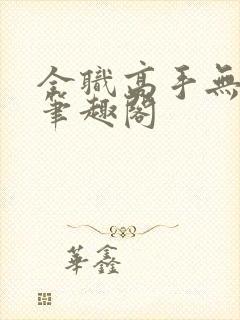 全職高手無
筆趣閣
華鑫